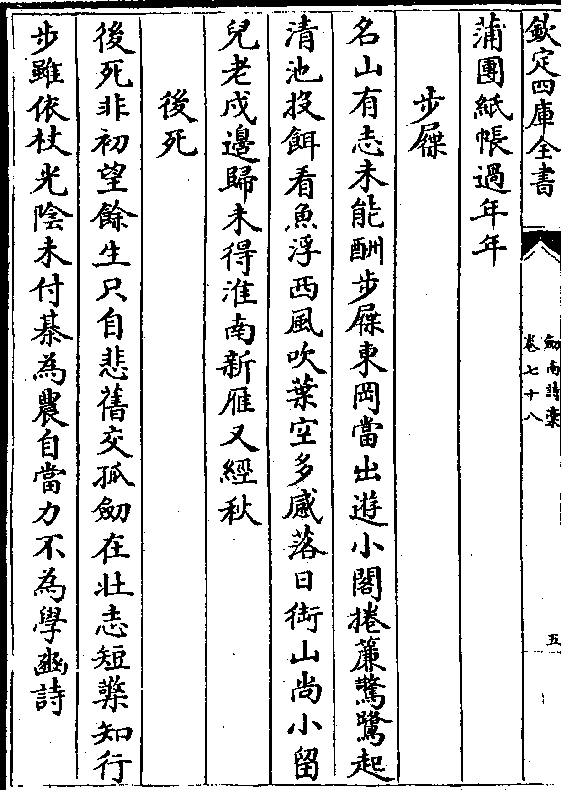 欽定四庫全書
劍南詩稾
卷七十八
五
蒲團紙帳過年年
步屧
名山有志未能酬步屧東岡當出遊小閣捲簾驚鷺起
清池投餌看魚浮西風吹葉空多感落日銜山尚小留
兒老戍邊歸未得淮南新雁又經秋
後死
後死非初望餘生只自悲舊交孤劒在壯志短檠知行
步雖依杖光陰未付棊為農自當力不為學豳詩